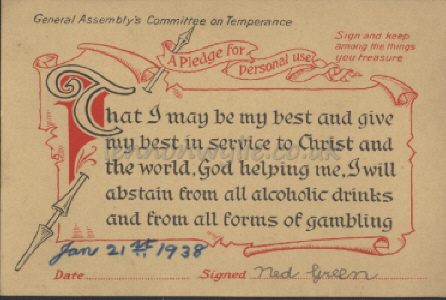 General Assembly's Committee on Temperance
Sign and keep
among the things
you treasure
A Pledge for
Personal use
That I may be my best and give
my best in service to Christ and
the world, God helping me, I will
abstain from all alcoholic drinks
and from all forms of gambling
Jan 21st 1938
Date Signed Ned Green